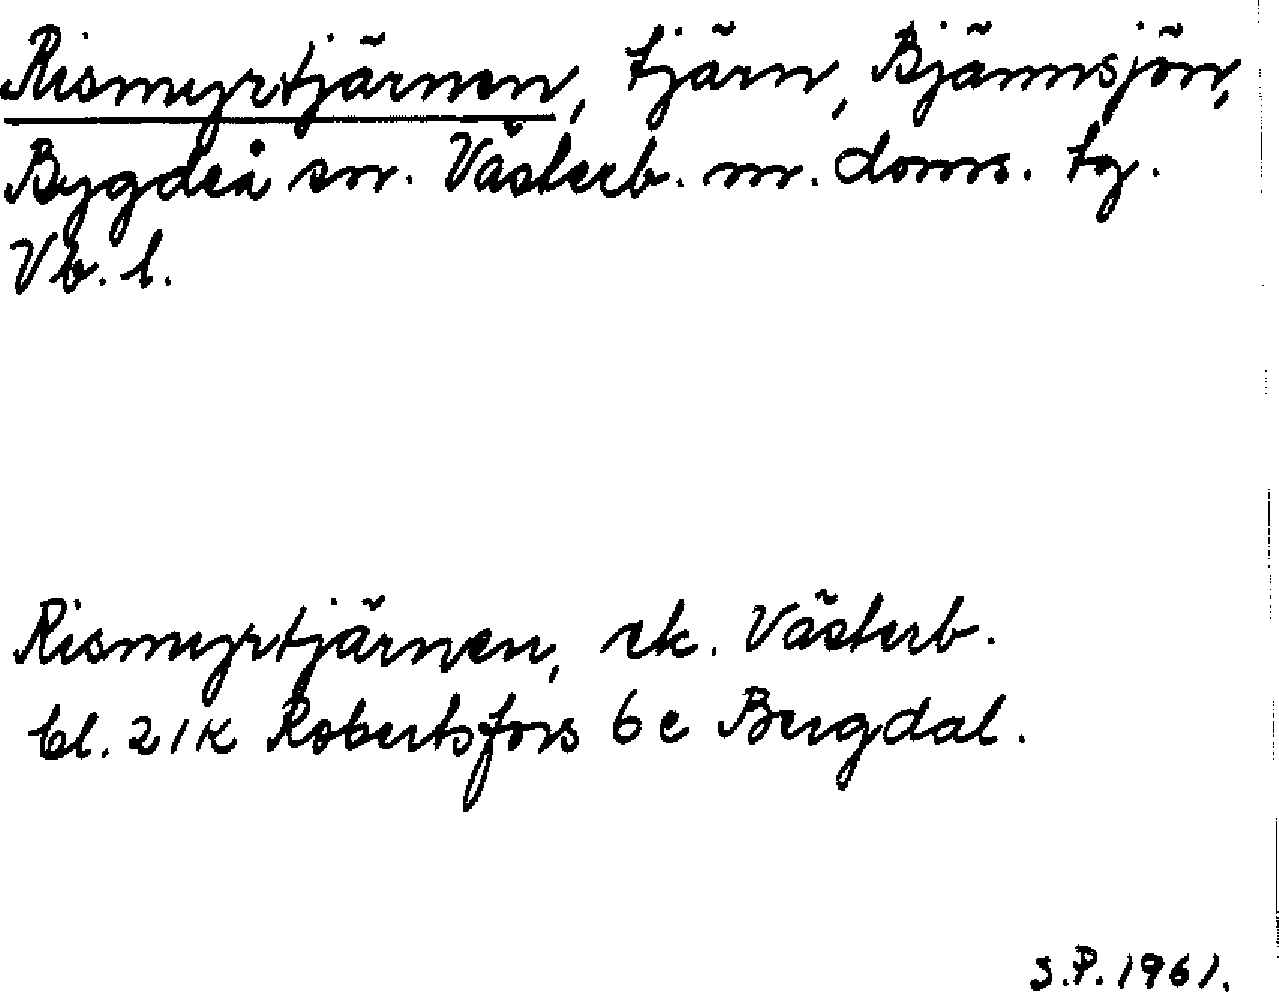 Rismyrtjärnen, tjärn, Bjännsjön,
Bygdeå sn. Västerb. n. doms. tg.
Vb. l.
Rismyrtjärnen, ek. Västerb.
bl. 21K Robertsfors 6e Bergdal.
S.P. 1961.